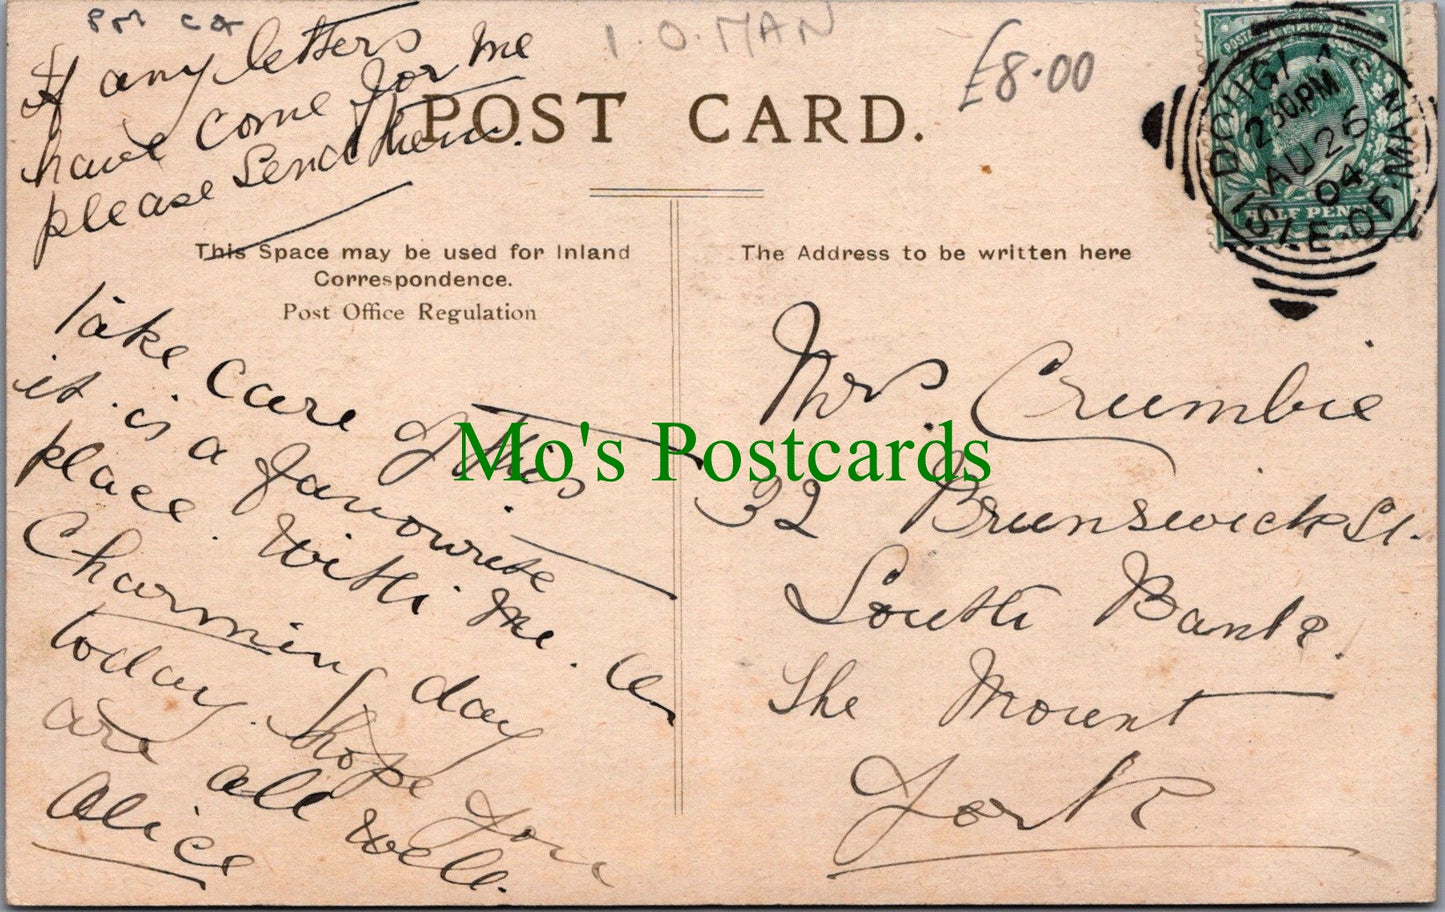 PM CA
I.O.MAN
£8.00
If any letters
have come for me
please send them.
POST CARD.
This Space may be used for Inland
Correspondence.
Post Office Regulation
The Address to be written here
POSTAGE
HALF PENNY
DOUGLAS
2 30PM
AU 26
04
ISLE-OF-MAN
Take care of this
it is a favourite
place. With me. A
Charming day
today. hope you
are all well.
Alice
Mrs Crumbie
32 Brunswick St.
South Bank.
The Mount
York
Mo's Postcards